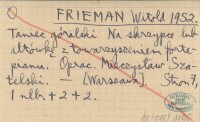 FRIEMAN Witold 1952.
Taniec góralski. Na skrzypce lub
altówkę z towarzyszeniem forte-
pianu. Oprac. Mieczysław Sza-
leski. [Warszawa] Stron 7,
1 nlb. + 2 + 2.